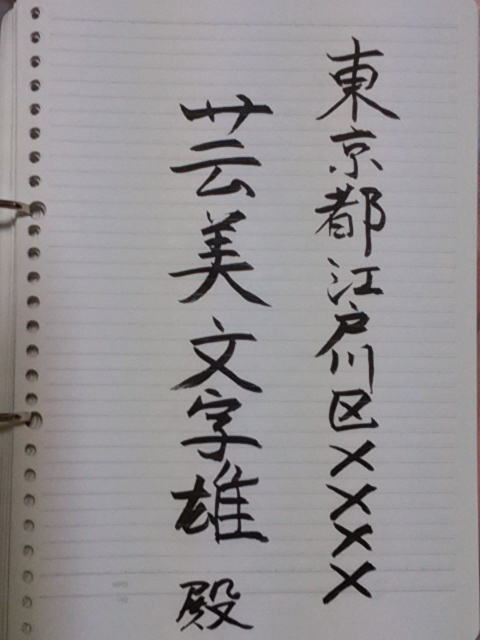 東京都江戸川区××××
芸美文字雄 殿